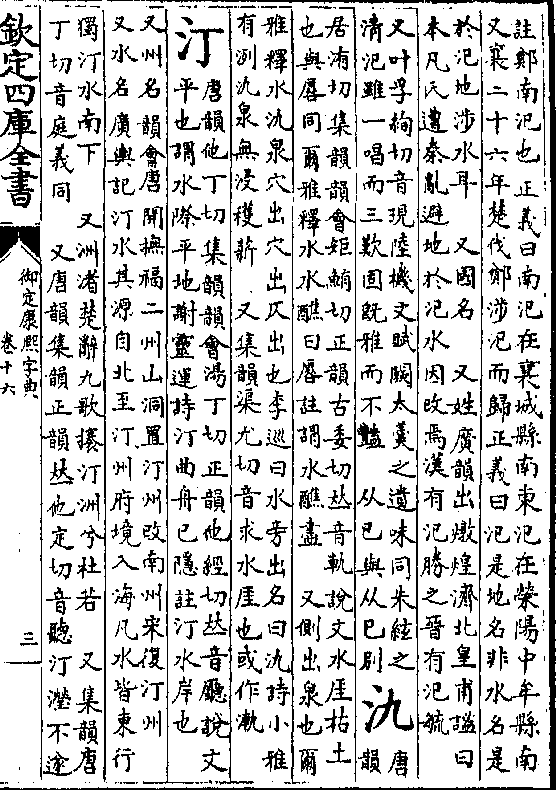 註鄭南汜也正義曰南汜在襄城縣南東汜在滎陽中牟縣南
又襄二十六年楚伐鄭涉汜而歸正義曰汜是地名非水名是
於汜地涉水耳　又國名　又姓廣韻出燉煌濟北皇甫謐曰
本凡氏遭秦亂避地於汜水因改焉漢有汜勝之晉有汜毓
又叶孚絢切音現陸機文賦闕太羹之遺味同朱絃之
清汜雖一唱而三歎固旣雅而不豔　从巳與从已别
氿
唐韻
居洧切集韻韻會矩鮪切正韻古委切𠀤音軌說文水厓枯土
也與厬同爾雅釋水水醮曰厬註謂水醮盡　又側出泉也爾
雅釋水氿泉穴出穴出仄出也李巡曰水旁出名曰氿詩小雅
有冽氿泉無浸穫薪　又集韻渠尤切音求水厓也或作漖
汀
唐韻他丁切集韻韻會湯丁切正韻他經切𠀤音廳說文
平也謂水際平地謝靈運詩汀曲舟已隱註汀水岸也
又州名韻會唐開撫福二州山洞置汀州改南州宋復汀州
又水名廣輿記汀水其源自北至汀州府境入海凡水皆東行
獨汀水南下　又洲渚楚辭九歌搴汀洲兮杜若　又集韻唐
丁切音庭義同　又唐韻集韻正韻𠀤他定切音聽汀瀅不遂
欽定四庫全書
御定康熙字典
卷十六
三